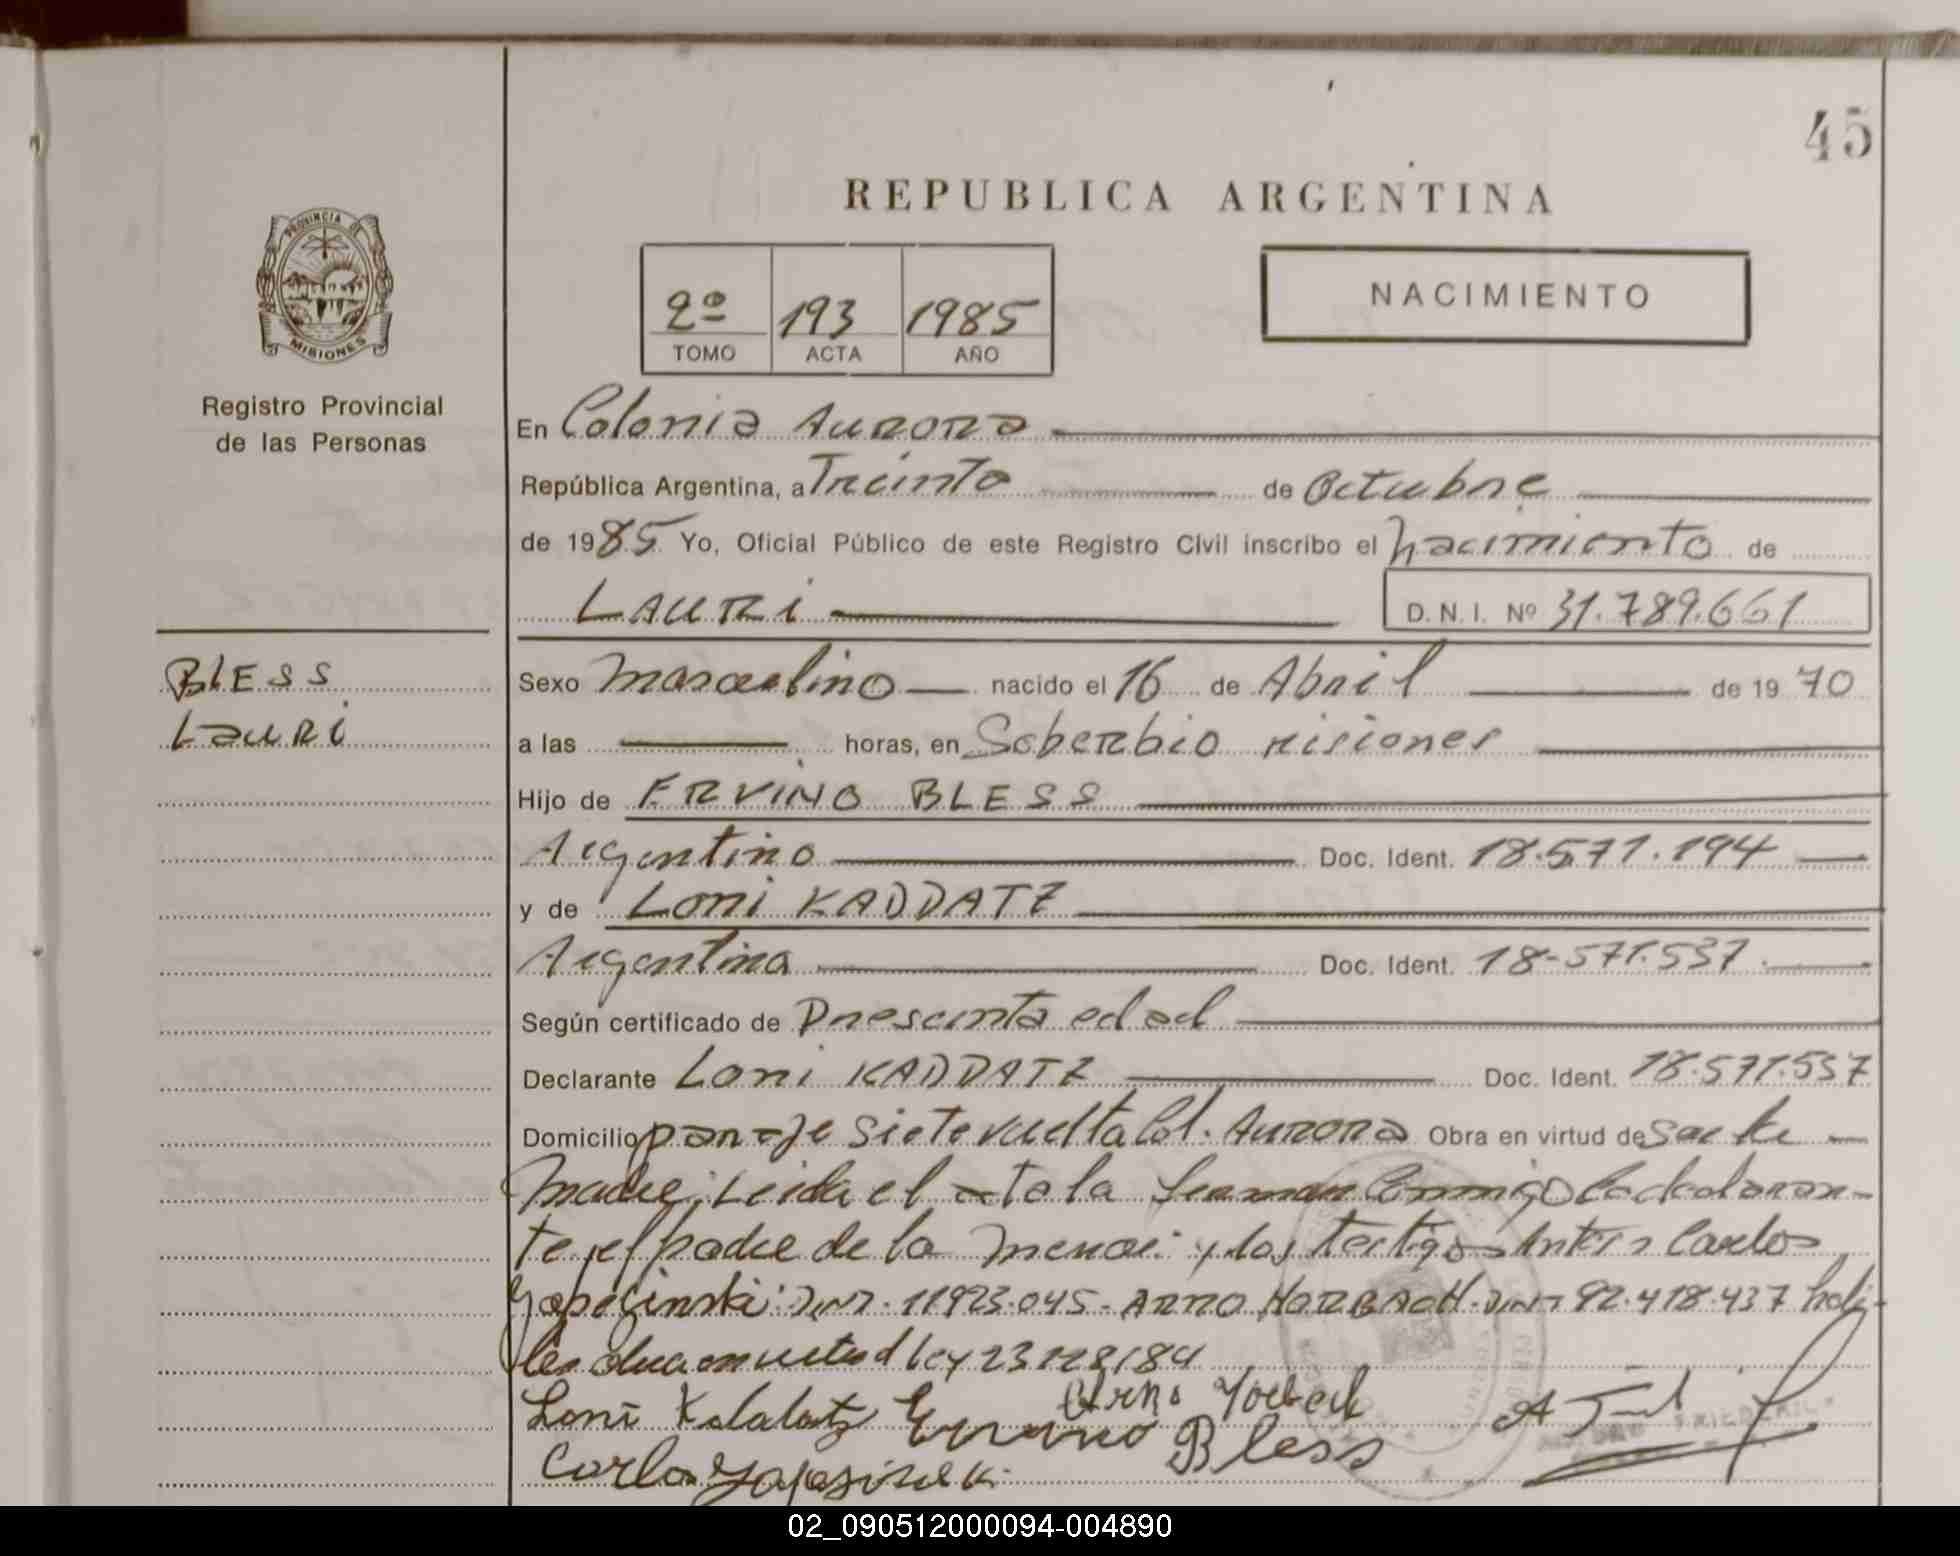 45
REPUBLICA ARGENTINA
PROVINCIA DE
MISIONES
Registro Provincial
de las Personas
2º 193 1985
TOMO ACTA AÑO
NACIMIENTO
En Colonia Aurora
República Argentina, a Treinta de Octubre
de 1985 Yo, Oficial Público de este Registro Civil inscribo el nacimiento de
LAURI D. N. I. Nº 31.789.661
BLESS
Lauri
Sexo masculino nacido el 16 de Abril de 1970
a las horas, en Soberbio Misiones
Hijo de ERVINO BLESS
Argentino Doc. Ident. 18.571.194
y de Loni KADDATZ
Argentina Doc. Ident. 18-571.537
Según certificado de Presunta edad
Declarante Loni KADDATZ Doc. Ident. 18.571.537
Domicilio paraje Siete vuelta Col. Aurora Obra en virtud de ser la
madre, Leida el acta la firman conmigo la declaran-
te, el padre de la menor y los testigos Carlos
DNI. 11923.045- ARNO HORBACH. DNI 92.418.437 habi-
les obra en virtud ley 23128/84
Arno Horbach
Loni Kadatz Ervino Bless
Carlos
02_090512000094-004890